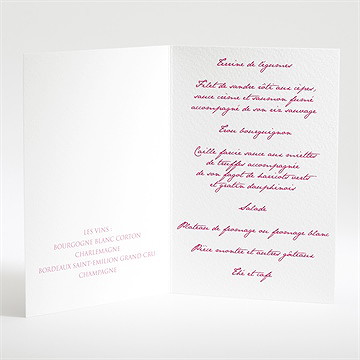 LES VINS :
BOURGOGNE BLANC CORTON
CHARLEMAGNE
BORDEAUX SAINT-EMILION GRAND CRU
CHAMPAGNE
Terrine de legumes
Filet de sandre rôti aux cèpes,
sauce crème et saumon fumé
accompagné de son riz sauvage
Trou bourguignon
Caille farcie sauce aux miettes
de truffes accompagnée
de son fagot de haricots verts
et gratin dauphinois
Salade
Plateau de fromage ou fromage blanc
Pièce montée et autres gâteaux
Thé et café